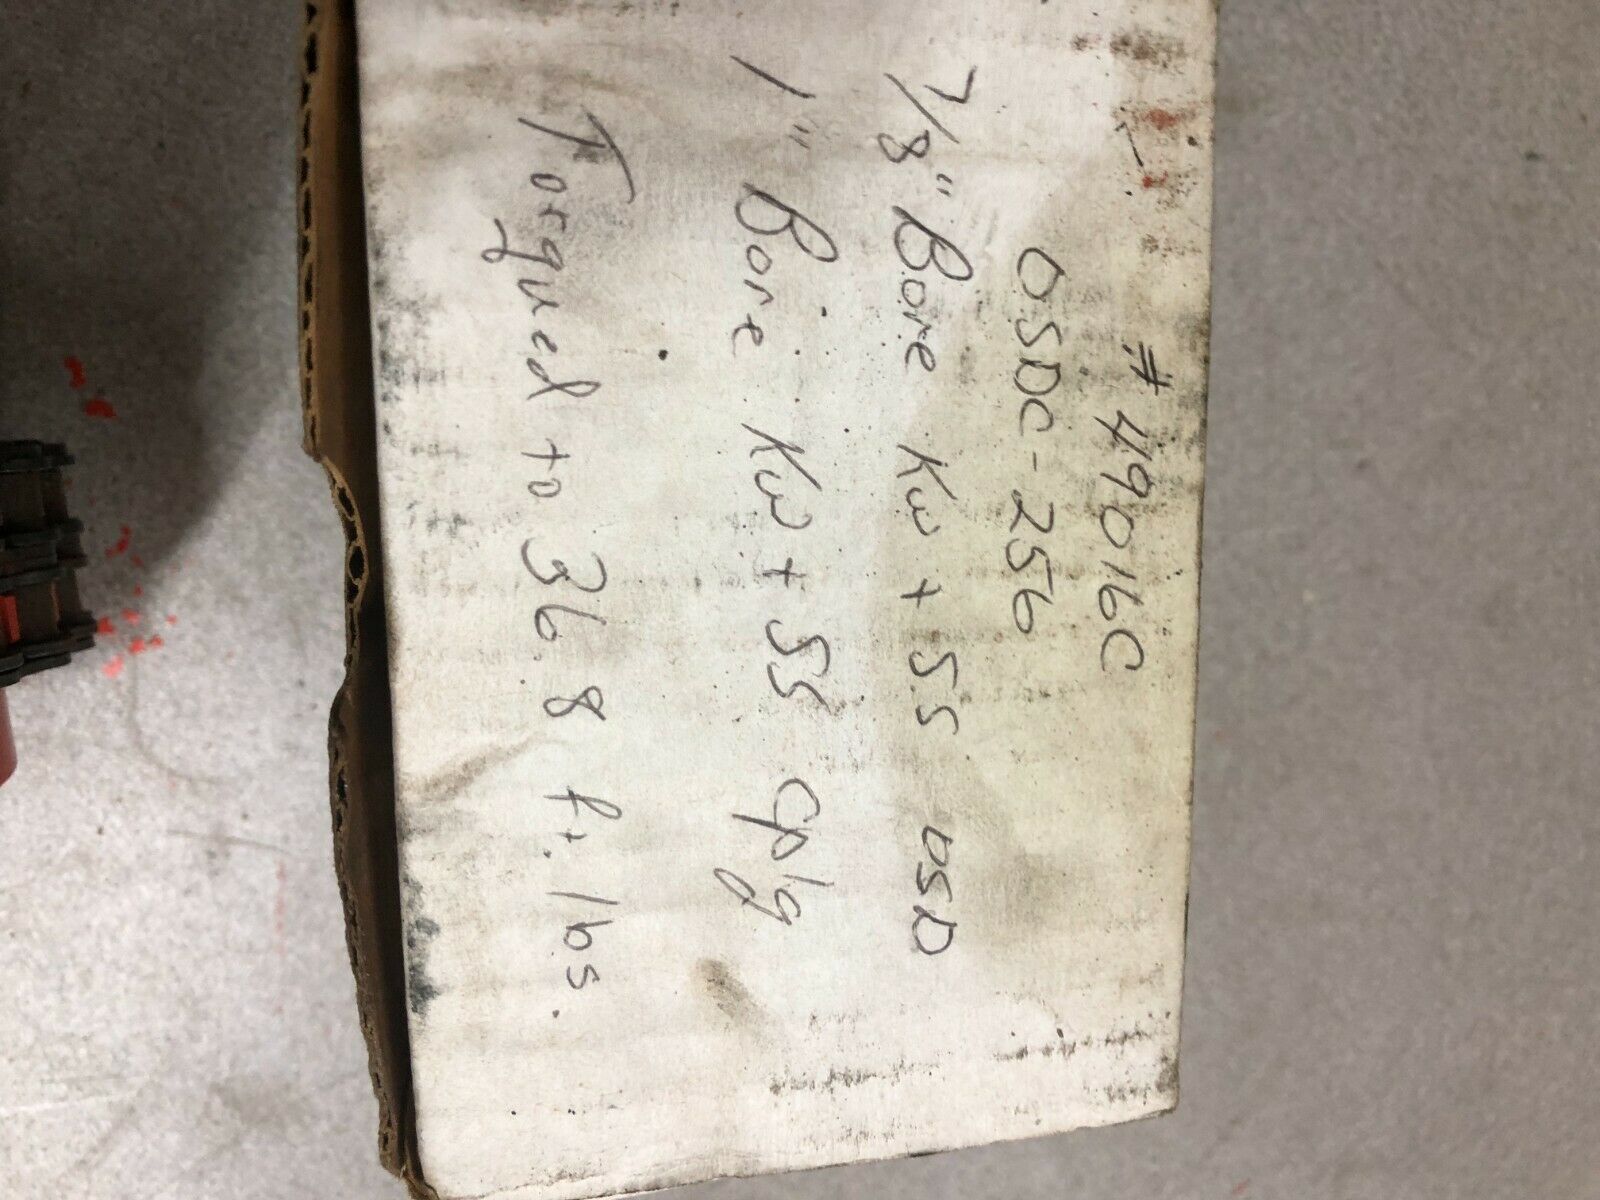 # 49016C
OSDC-256
7/8" Bore Kw + SS OSD
1" Bore Kw + SS Cplg
Torqued to 368 ft. lbs.